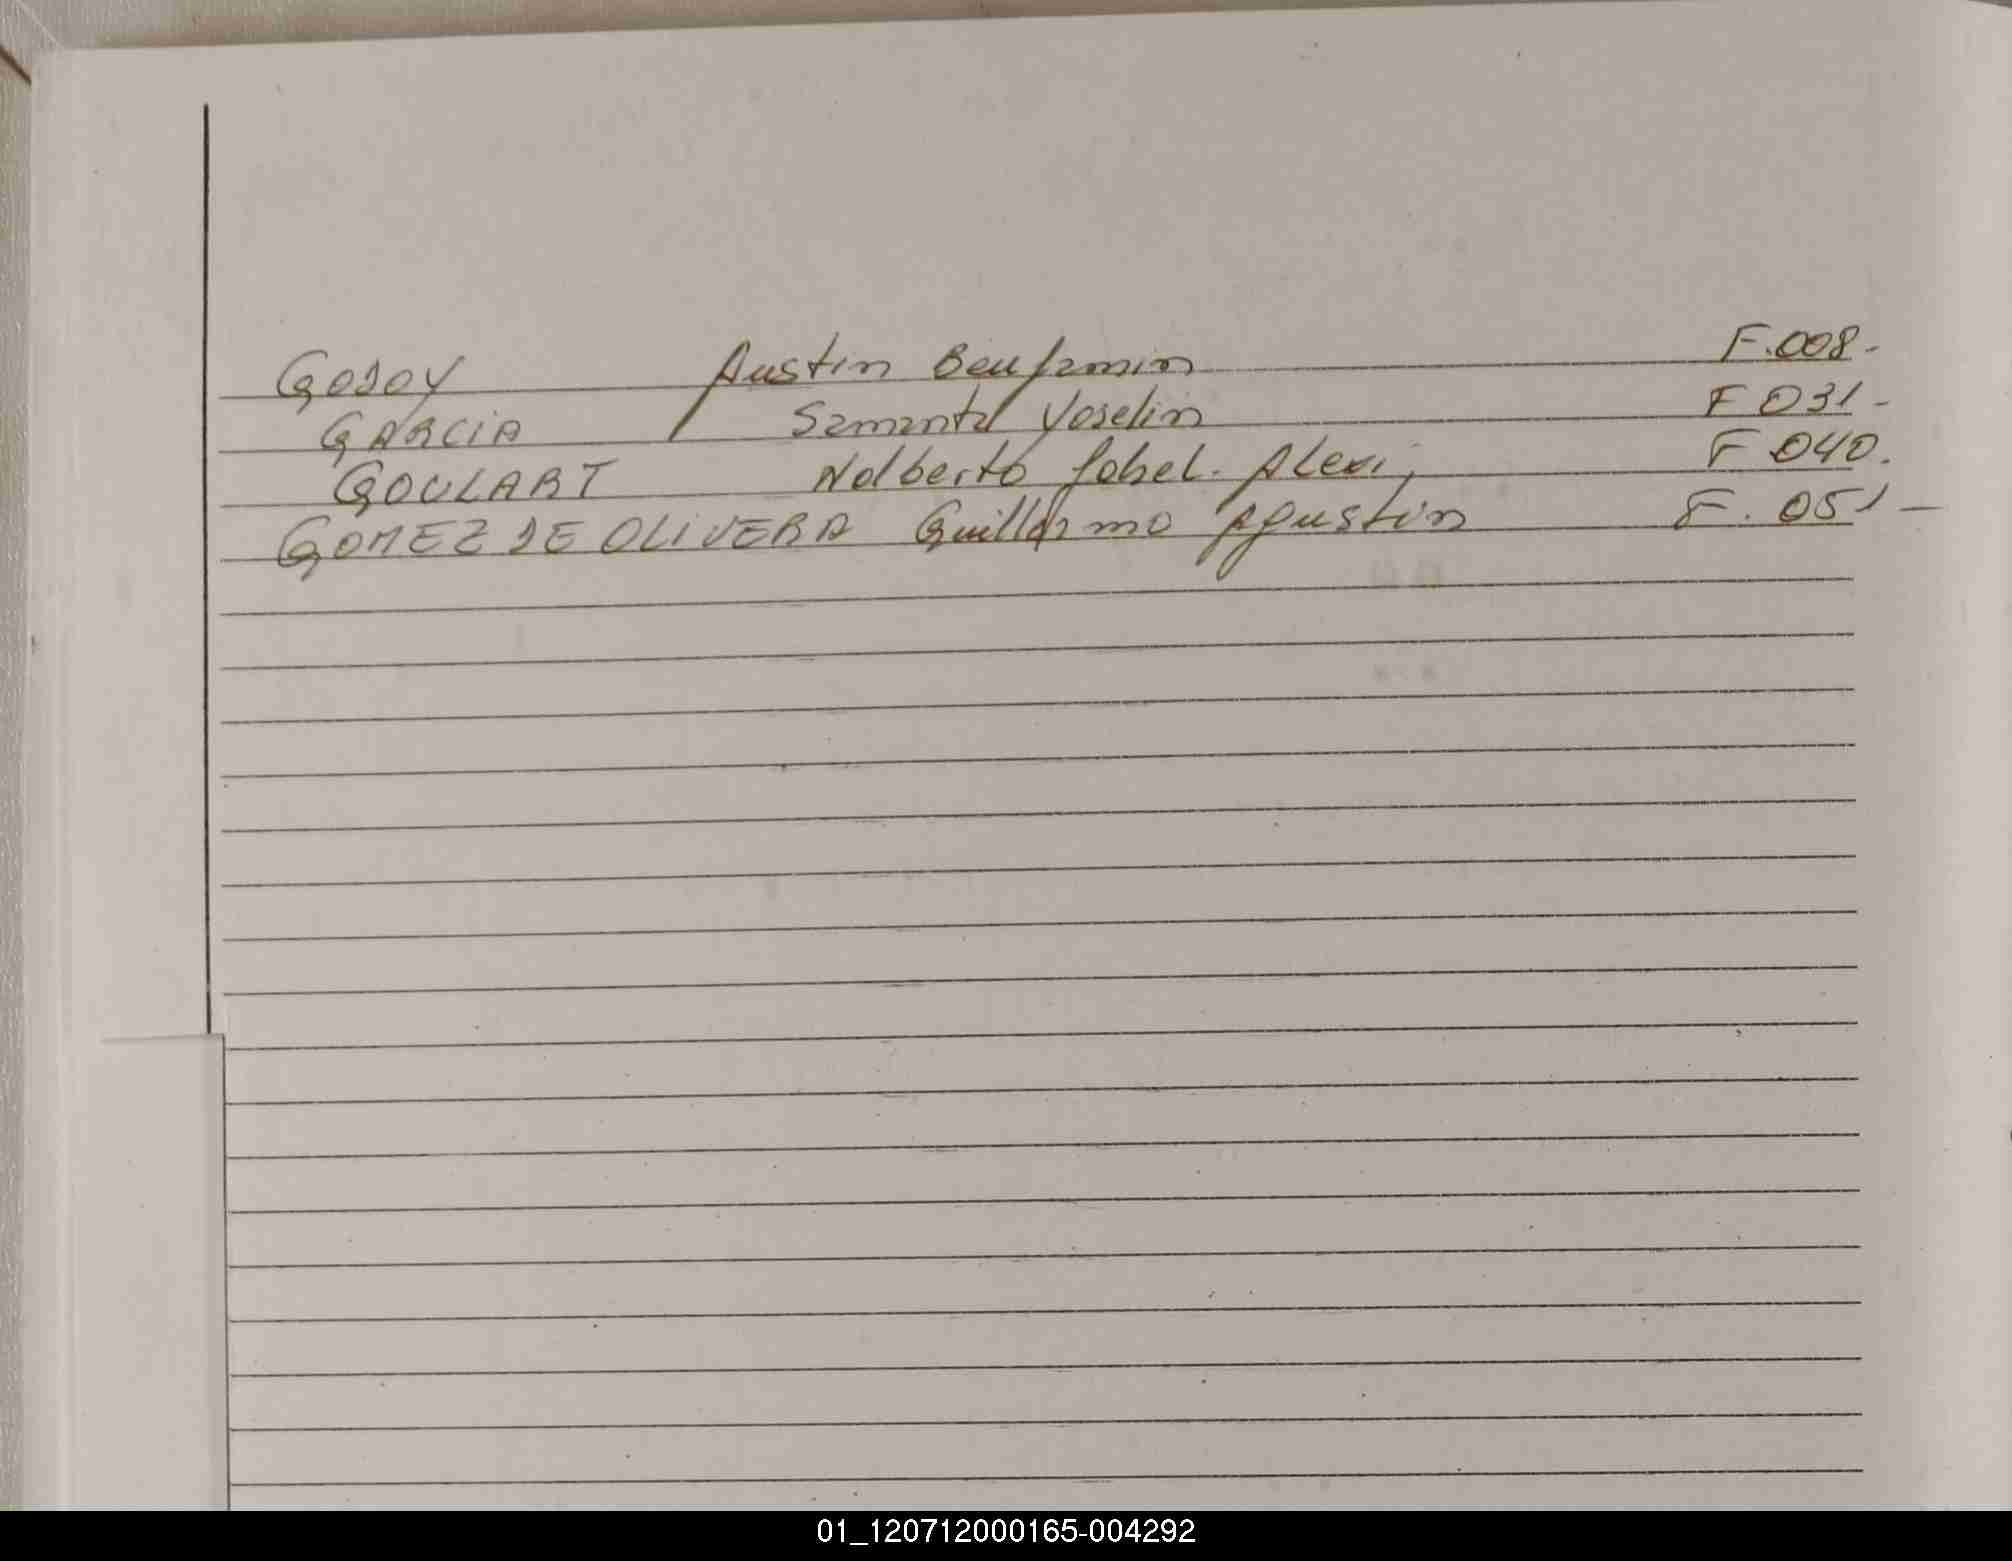 GODOY Austin Benjamin F.008-
GARCIA Samanta Yoselin F 031-
GOULART Nolberto Alexi, F 040.
GOMEZ DE OLIVERA Guillermo Agustin F. 051-
01_120712000165-004292